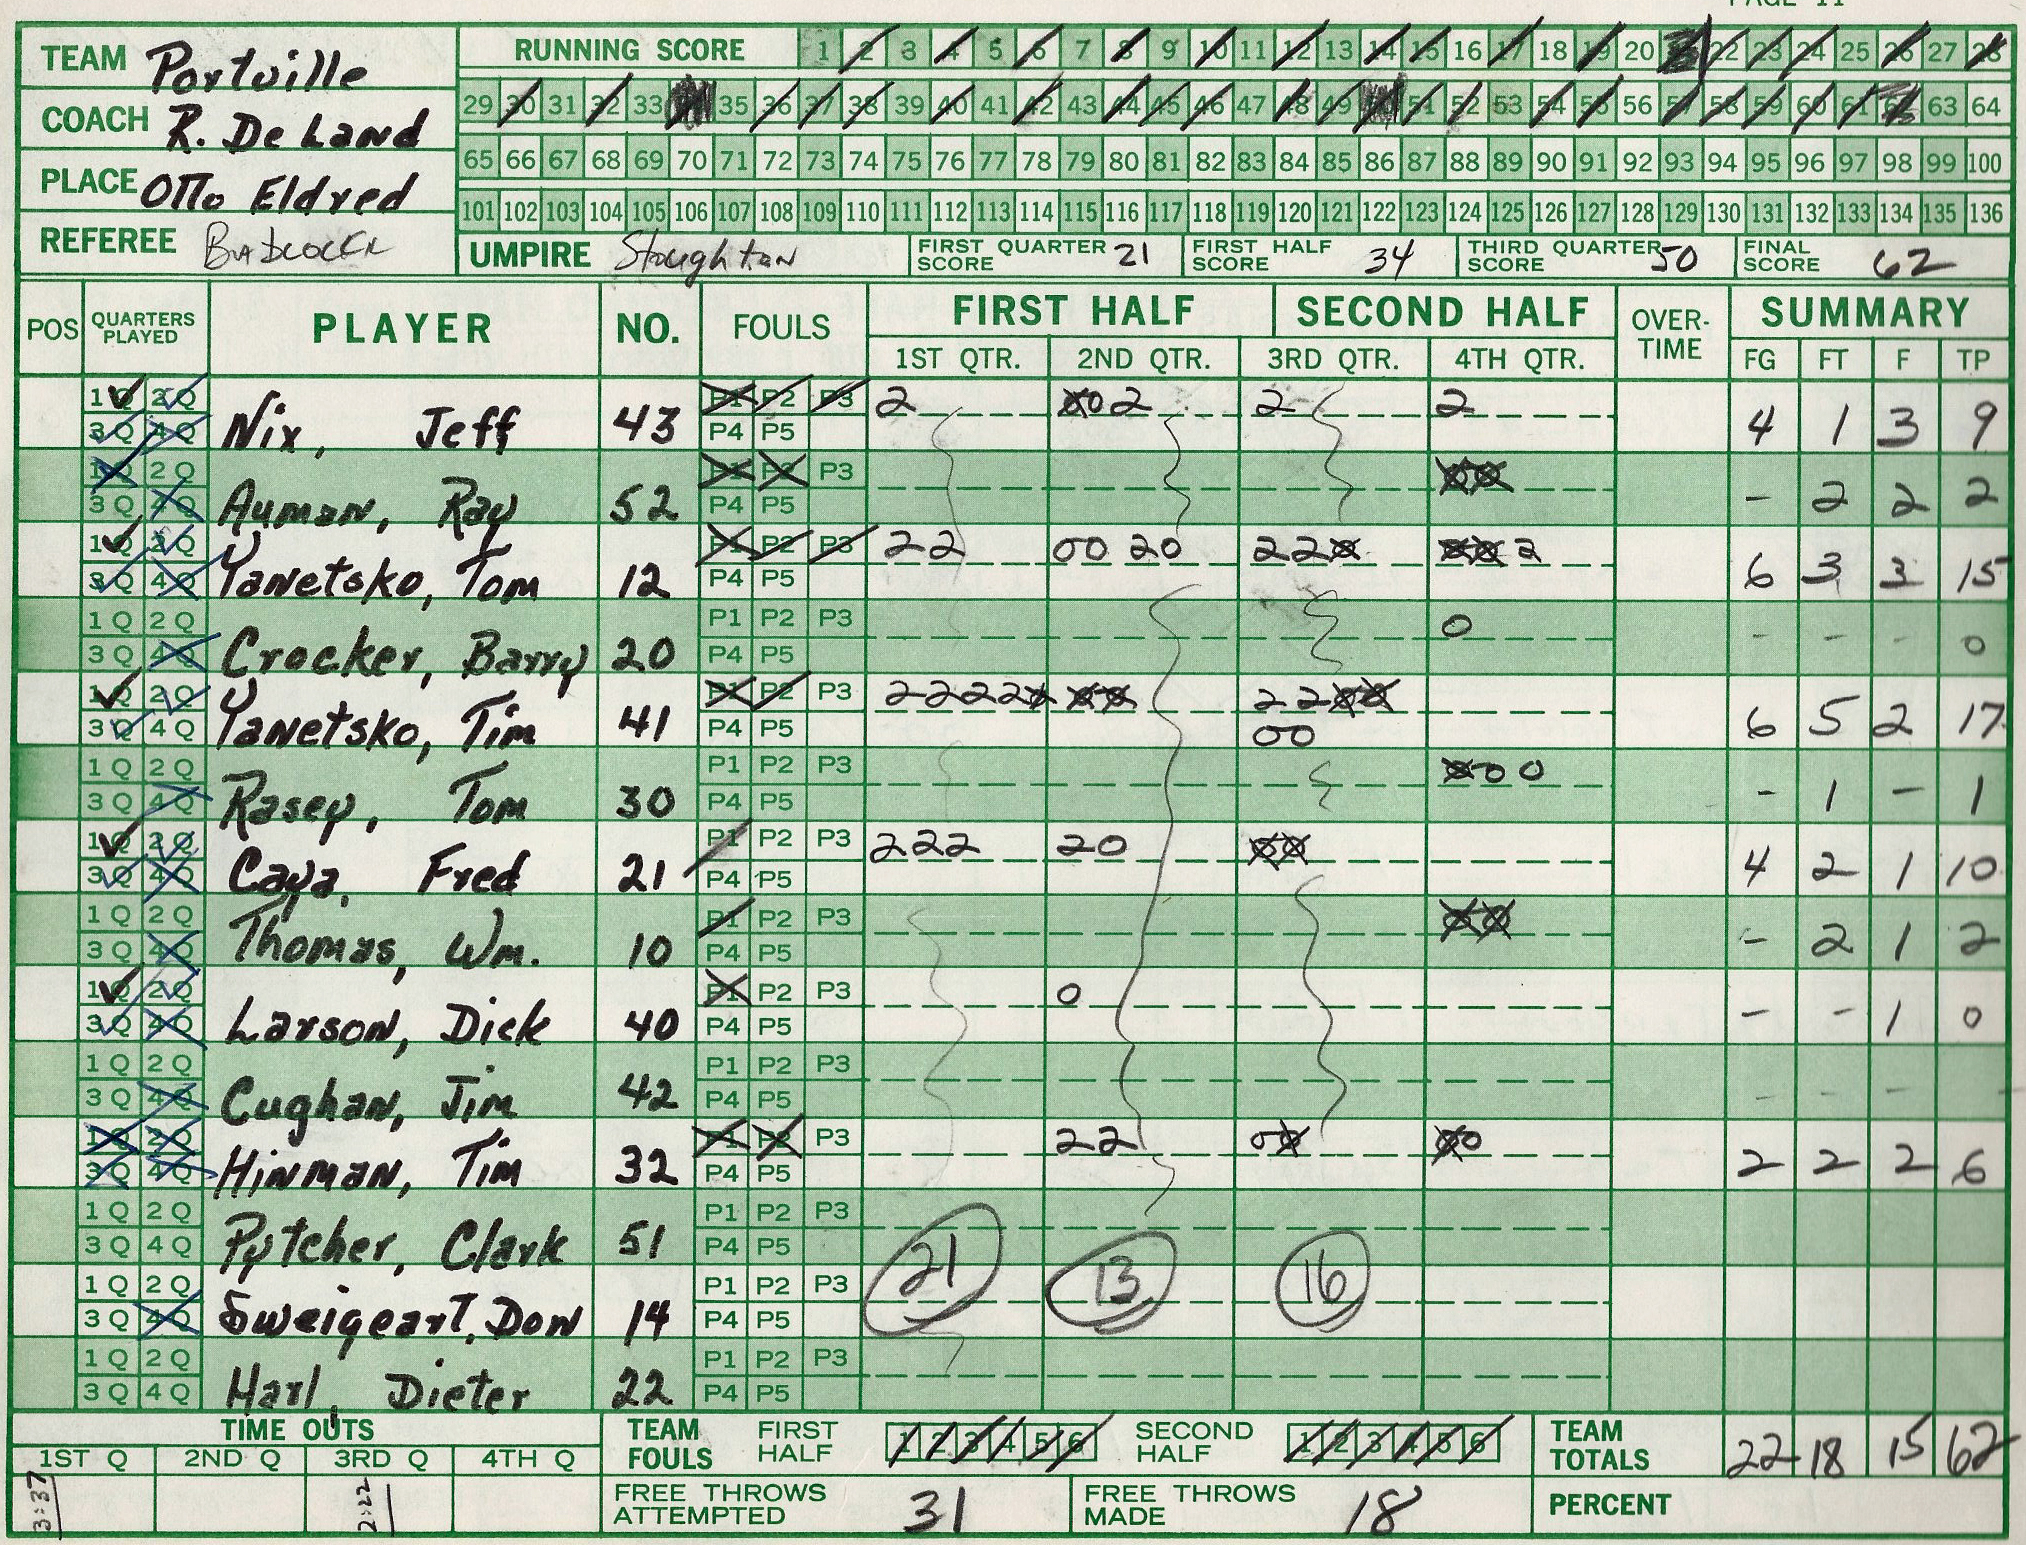 PAGE 11
TEAM Portville
COACH R. De Land
PLACE Otto Eldred
REFEREE Babcock
RUNNING SCORE 1 2 3 4 5 6 7 8 9 10 11 12 13 14 15 16 17 18 19 20 22 23 24 25 26 27 28
29 30 31 32 33 35 36 37 38 39 40 41 42 43 44 45 46 47 48 49 51 52 53 54 55 56 57 58 59 60 61 62 63 64
65 66 67 68 69 70 71 72 73 74 75 76 77 78 79 80 81 82 83 84 85 86 87 88 89 90 91 92 93 94 95 96 97 98 99 100
101 102 103 104 105 106 107 108 109 110 111 112 113 114 115 116 117 118 119 120 121 122 123 124 125 126 127 128 129 130 131 132 133 134 135 136
UMPIRE Stoughton FIRST QUARTER SCORE 21 FIRST HALF SCORE 34 THIRD QUARTER SCORE 50 FINAL SCORE 62
POS QUARTERS PLAYED PLAYER NO. FOULS FIRST HALF SECOND HALF OVER-TIME SUMMARY
1ST QTR. 2ND QTR. 3RD QTR. 4TH QTR. FG FT F TP
1Q 2Q 3Q 4Q Nix, Jeff 43 P1 P2 P3 P4 P5 2 00 2 2 2 4 1 3 9
1Q 2Q 3Q 4Q Auman, Ray 52 P1 P2 P3 P4 P5 00 - 2 2 2
1Q 2Q 3Q 4Q Yanetsko, Tom 12 P1 P2 P3 P4 P5 22 00 20 220 00 2 6 3 3 15
1Q 2Q 3Q 4Q Crocker, Barry 20 P1 P2 P3 P4 P5 0 - - - 0
1Q 2Q 3Q 4Q Yanetsko, Tim 41 P1 P2 P3 P4 P5 22220 00 2200 00 6 5 2 17
1Q 2Q 3Q 4Q Rasey, Tom 30 P1 P2 P3 P4 P5 00 0 - 1 - 1
1Q 2Q 3Q 4Q Caya, Fred 21 P1 P2 P3 P4 P5 222 20 00 4 2 1 10
1Q 2Q 3Q 4Q Thomas, Wm. 10 P1 P2 P3 P4 P5 00 - 2 1 2
1Q 2Q 3Q 4Q Larson, Dick 40 P1 P2 P3 P4 P5 0 - - 1 0
1Q 2Q 3Q 4Q Cughan, Jim 42 P1 P2 P3 P4 P5 - - - -
1Q 2Q 3Q 4Q Hinman, Tim 32 P1 P2 P3 P4 P5 22 00 00 2 2 2 6
1Q 2Q 3Q 4Q Pytcher, Clark 51 P1 P2 P3 P4 P5
1Q 2Q 3Q 4Q Sweigeart, Don 14 P1 P2 P3 P4 P5 21 13 16
1Q 2Q 3Q 4Q Harl, Dieter 22 P1 P2 P3 P4 P5
TIME OUTS TEAM FOULS FIRST HALF 1 2 3 4 5 6 SECOND HALF 1 2 3 4 5 6 TEAM TOTALS 22 18 15 62
1ST Q 2ND Q 3RD Q 4TH Q
3:37 2:22 FREE THROWS ATTEMPTED 31 FREE THROWS MADE 18 PERCENT